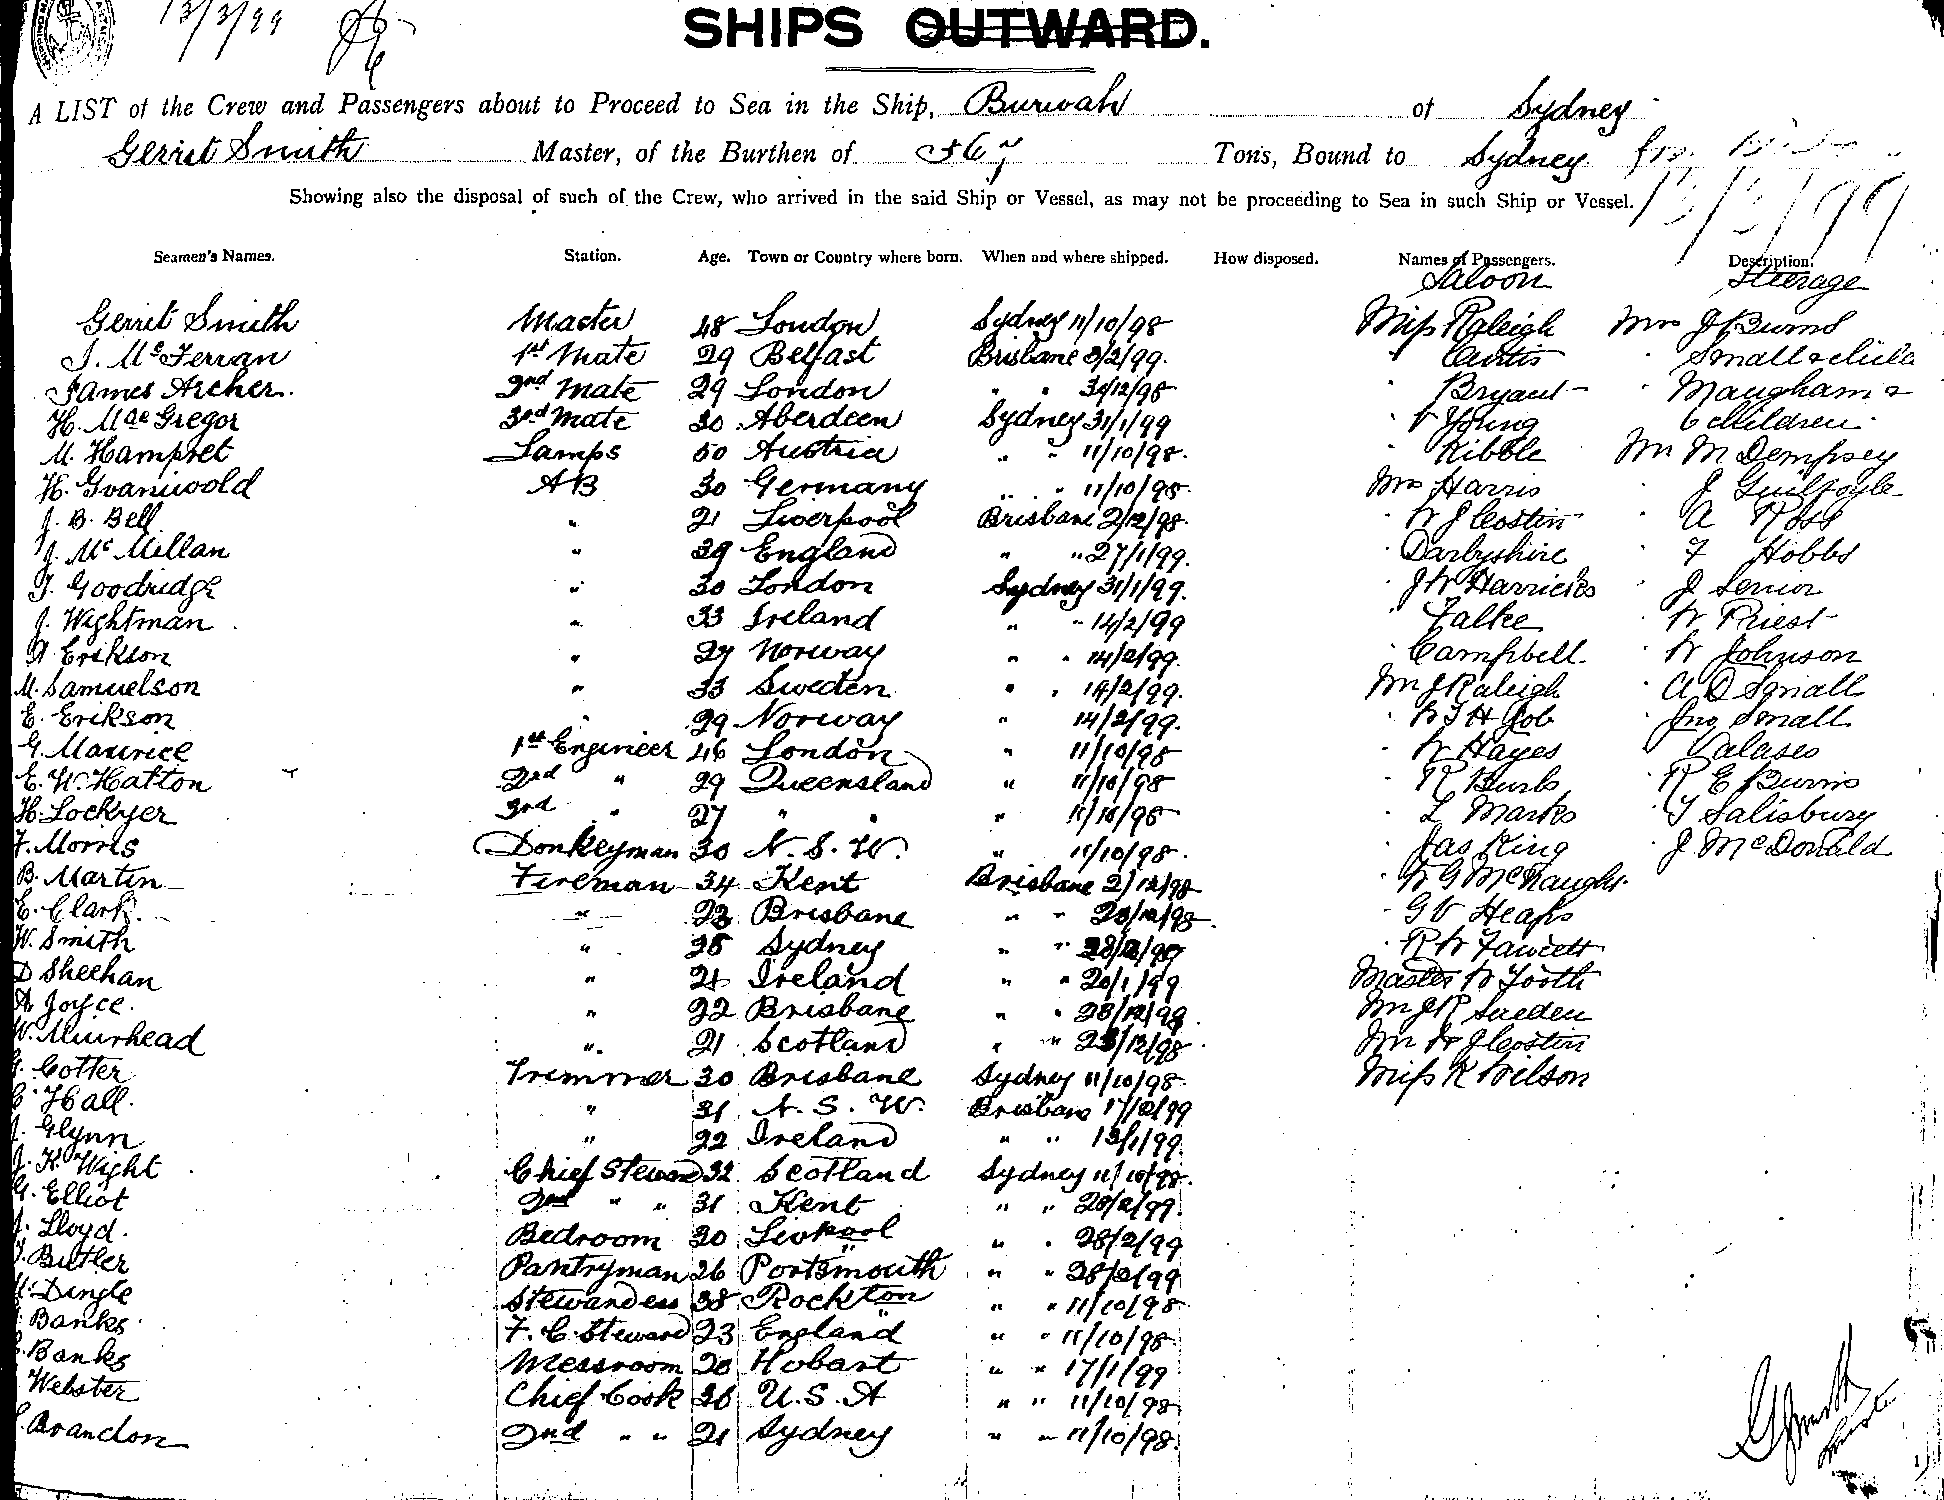 13/3/99
SHIPS OUTWARD.
A LIST of the Crew and Passengers about to Proceed to Sea in the Ship, Burwah of Sydney
Gerrit Smith Master, of the Burthen of 567 Tons, Bound to Sydney
Showing also the disposal of such of the Crew, who arrived in the said Ship or Vessel, as may not be proceeding to Sea in such Ship or Vessel. 13/3/99
Seamen's Names. Station. Age. Town or Country where born. When and where shipped. How disposed. Names of Passengers. Description.
Saloon Steerage
Gerrit Smith Master 48 London Sydney 11/10/98 Miss Raleigh Mrs J Burns
J. McFerran 1st Mate 29 Belfast Brisbane 3/2/99. " Curtis " Small & child
James Archer. 2nd Mate 29 London " " 30/12/98 " Bryant " Maugham &
H. MacGregor 3rd Mate 30 Aberdeen Sydney 31/1/99 " V Young 6 children
M. Hampret Lamps 50 Austria " " 11/10/98. " Kibble Mr M Dempsey
H. Gvaniwold AB 30 Germany " " 11/10/98 Mrs Harris " J Guilfoyle
J. B. Bell " 21 Liverpool Brisbane 2/12/98 " W J Costin " A Ross
J. McMillan " 39 England " " 27/1/99. " Darbyshire " F Hobbs
J. Goodridge " 30 London Sydney 31/1/99. " J W Harricks " J Senior
J. Wightman " 33 Ireland " " 14/2/99 " Falke " W Priest
Erikson " 27 Norway " " 14/2/99. " Campbell " W Johnson
M. Samuelson " 33 Sweden " " 14/2/99. Mr J Raleigh " A D Small
E. Erikson " 29 Norway " 14/2/99. " H Job " Jno Small
G. Maurice 1st Engineer 46 London " 11/10/98 " W Hayes " Valases
E. W. Hatton 2nd " 29 Queensland " 11/10/98 " R Burls " R E Burns
H. Lockyer 3rd " 27 " " " 11/10/98 " L Marks " T Salisbury
F. Morris Donkeyman 30 N. S. W. " 11/10/98. " Jas King " J McDonald
B. Martin Fireman 34 Kent Brisbane 2/12/98 " W G McNaught
E. Clark. " 23 Brisbane " " 28/12/98 " G V Heaps
W. Smith " 25 Sydney " " 28/12/98 " R W Fawcett
D Sheehan " 24 Ireland " " 20/1/99 Master W Tooth
A Joyce. " 22 Brisbane " " 28/12/98 Mr J R Sneden
W. Muirhead " 21 Scotland " " 28/12/98 Mr W J Costin
Cotter Trimmer 30 Brisbane Sydney 11/10/98 Miss K Wilson
E. Hall. " 31 N. S. W. Brisbane 17/2/99
J. Glynn " 22 Ireland " " 13/1/99
J. K. Wight Chief Steward 32 Scotland Sydney 11/10/98.
G. Elliot 2nd " " 31 Kent " " 28/2/99.
J. Lloyd. Bedroom 30 Livpool " " 28/2/99
Butler Pantryman 26 Portsmouth " " 28/2/99
Dingle Stewardess 38 Rockton " " 11/10/98
Banks F. C. Steward 23 England " " 11/10/98
Banks Messroom 20 Hobart " " 17/1/99
Webster Chief Cook 36 U. S. A " " 11/10/98
Brandon 2nd " " 21 Sydney " " 11/10/98.
G Smith
Master